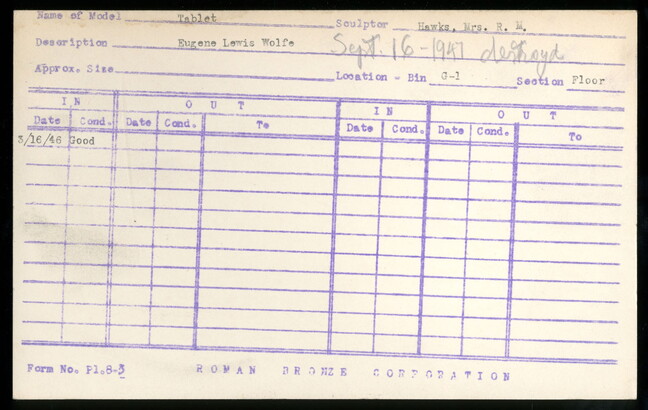 Name of Model Tablet Sculptor Hawks, Mrs. R. M.
Description Eugene Lewis Wolfe Sept. 16 - 1947 destroyd
Approx. Size Location - Bin G-1 Section Floor
IN OUT IN OUT
Date Cond. Date Cond. To Date Cond. Date Cond. To
3/16/46 Good
Form No. P1.8-3 ROMAN BRONZE CORPORATION